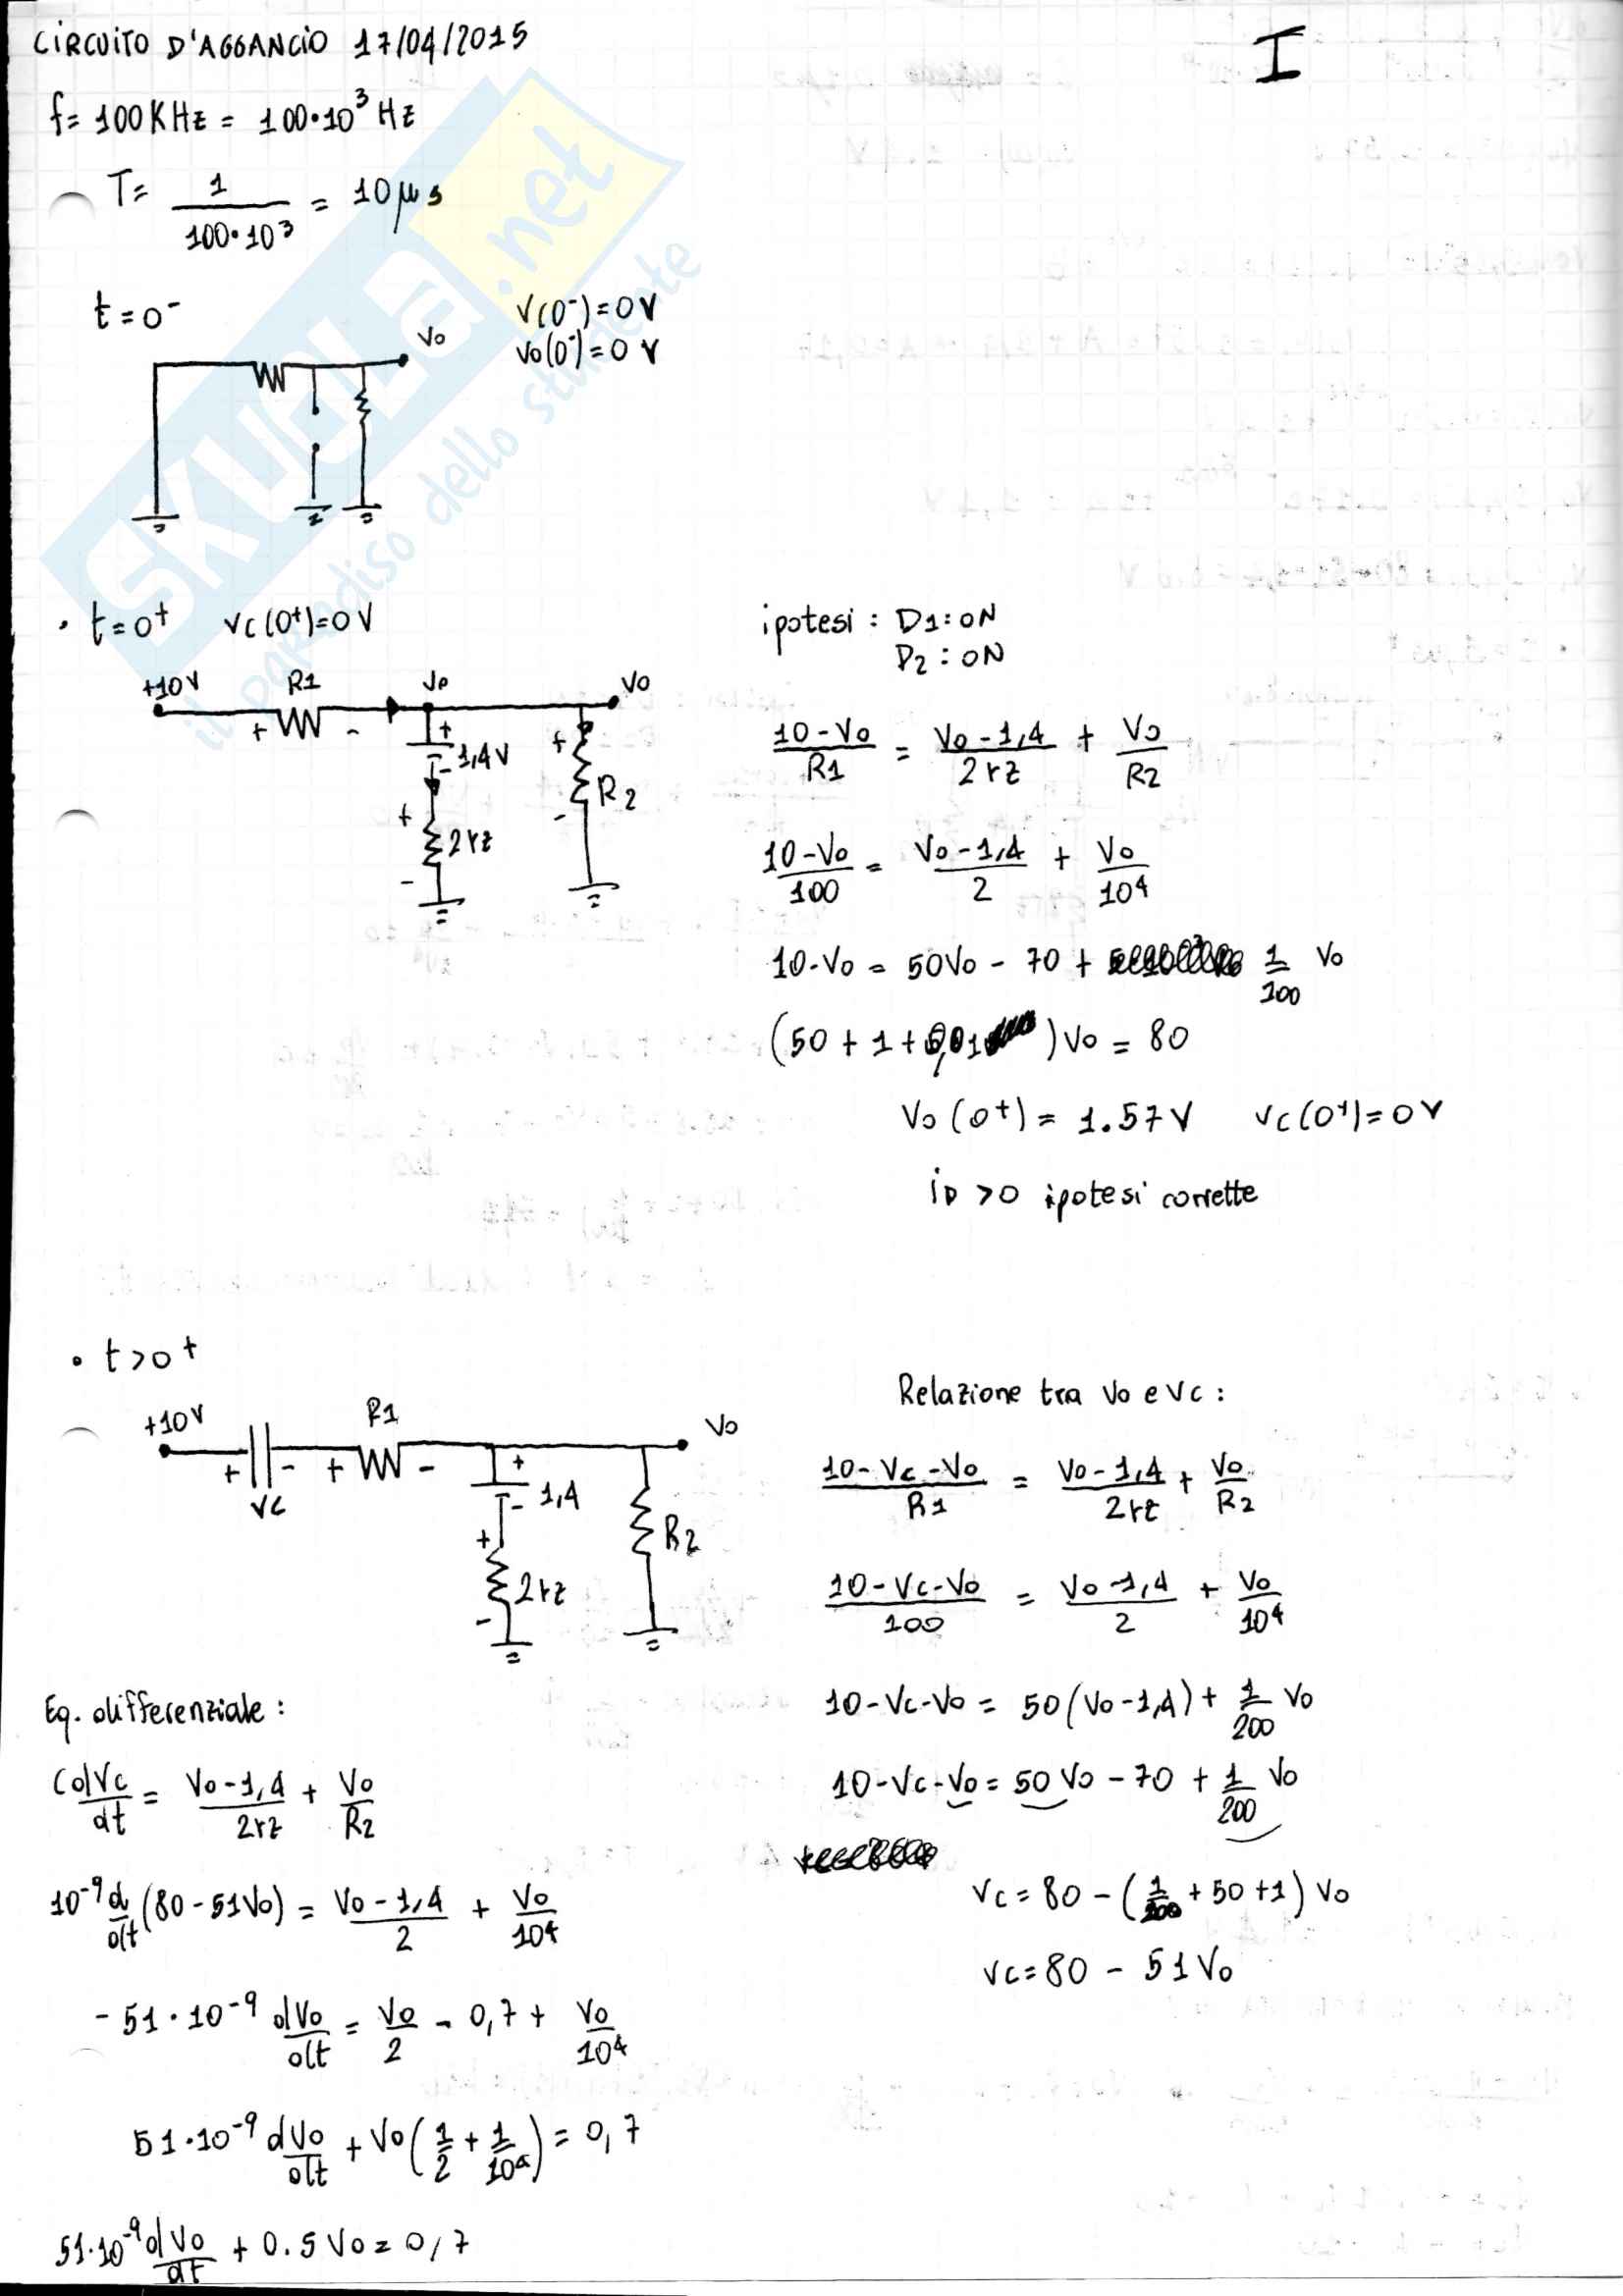 CIRCUITO D'AGGANCIO 17/04/2015
I
f= 100KHz = 100·10³ Hz
T= 1/(100·10³) = 10μs
t=0⁻
V(0⁻)=0V
Vo(0⁻)=0 V
Vo
SKUOLA.net
il paradiso dello studente
· t=0⁺ Vc(0⁺)=0V
ipotesi : D1:ON
D2:ON
+10V R1 Vo
+ - + 1,4V - + R2 -
+ 2rz -
(10-Vo)/R1 = (Vo-1,4)/2rz + Vo/R2
(10-Vo)/100 = (Vo-1,4)/2 + Vo/10⁴
10-Vo = 50Vo - 70 + 1/100 Vo
(50+1+0,01)Vo = 80
Vo(0⁺) = 1.57V Vc(0⁺)=0V
iD >0 ipotesi corrette
· t>0⁺
+10V R1 Vo
+ - + - +
Vc - 1,4
+ 2rz - R2
Relazione tra Vo e Vc :
(10-Vc-Vo)/R1 = (Vo-1,4)/2rz + Vo/R2
(10-Vc-Vo)/100 = (Vo-1,4)/2 + Vo/10⁴
10-Vc-Vo = 50(Vo-1,4)+ 1/200 Vo
10-Vc-Vo = 50Vo-70 + 1/200 Vo
Vc=80-(1/200+50+1)Vo
Vc=80 - 51Vo
Eq. differenziale :
CdVc/dt = (Vo-1,4)/2rz + Vo/R2
10⁻⁹ d/dt(80-51Vo) = (Vo-1,4)/2 + Vo/10⁴
-51·10⁻⁹ dVo/dt = Vo/2 - 0,7 + Vo/10⁴
51·10⁻⁹ dVo/dt + Vo(1/2+1/10⁴) = 0,7
51·10⁻⁹ dVo/dt + 0.5Vo = 0,7